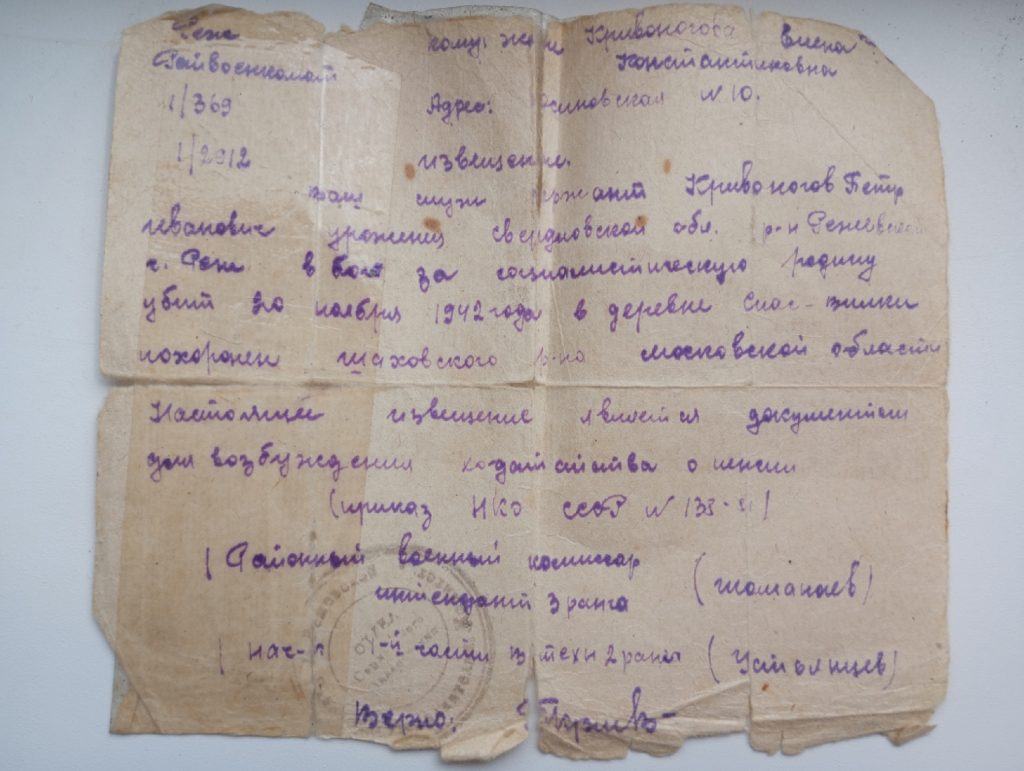 Реж кому: жене Кривоногова Елена
Райвоенкомат Константиновна
1/369 Адрес: N 10.
1/2912 извещение.
ваш муж Кривоногов Петр
Иванович уроженец свердловской обл. р-н Режевской
г. Реж в бою за социалистическую родину
убит 20 ноября 1942 года в деревне Спас-вилки
похоронен шаховского р-на московской области
Настоящее извещение является документом
для возбуждения ходатайства о пенсии
(приказ НКО СССР N
( Районный военный комиссар
интендант 3 ранга (шаманаев)
( нач-к 1-й части в техн 2 ранга (Устьянцев)
Верно: